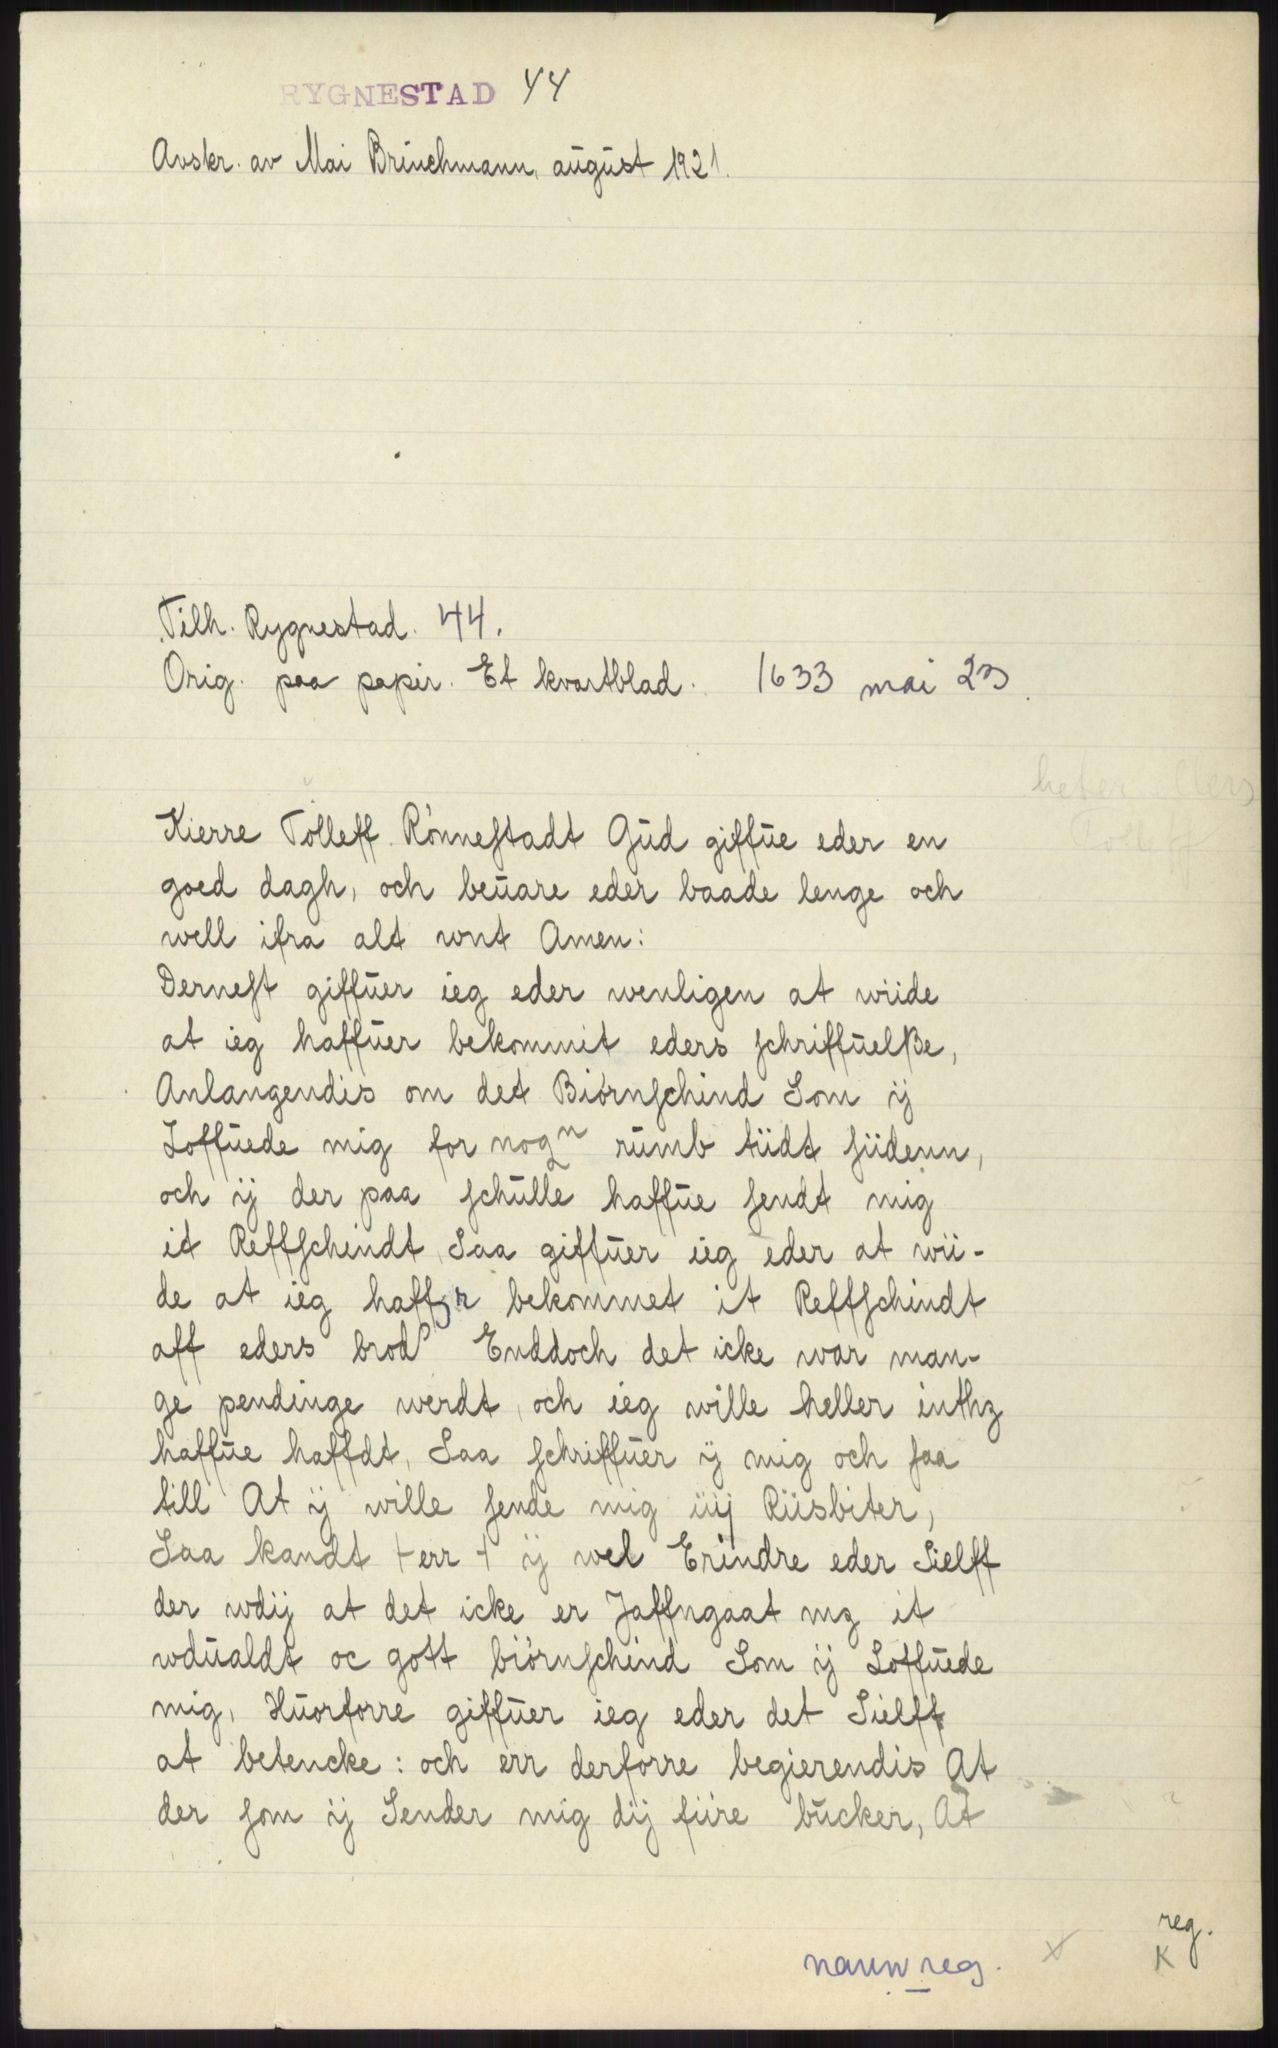 RYGNESTAD 44
Avskr. av Mai Brüuchmann, august 1921.
Tilh. Rygnestad. 44.
Orig. paa papir. Et kvartblad. 1633 mai 23.
heter
Tolleff
Kierre Tolleff Rönneſtadt Gud giffue eder en
goed dagh, och beuare eder baade lenge och
well ifra alt wnt Amen:
Derneſt giffuer ieg eder wenligen at wiide
at ieg haffuer bekommit eders ſchriffuelße,
Anlangendis om det Biörnſchind Som ÿ
Loffuede mig for nogn rumb tiidt ſiidenn,
och ÿ der paa ſchulle haffue ſendt mig
it Reffſchindt, Saa giffuer ieg eder at wii-
de at ieg haffer bekommet it Reffſchindt
aff eders brod Enddoch det icke war man-
ge pendinge werdt, och ieg wille heller inthz
haffue haffdt, Saa ſchriffuer ÿ mig och ſaa
till At ÿ wille ſende mig iiij Riisbiter,
Saa kandt + err + ÿ wel Erindre eder Sielff
der wdij at det icke er Jaffngaat mz it
wdualdt oc gott biörnſchind Som ÿ Loffuede
mig, Huorforre giffuer ieg eder det Sielff
at betencke: och err derforre begierendis At
der ſom ÿ Sender mig dij fiire bucker, At
reg.
K
navn reg. x